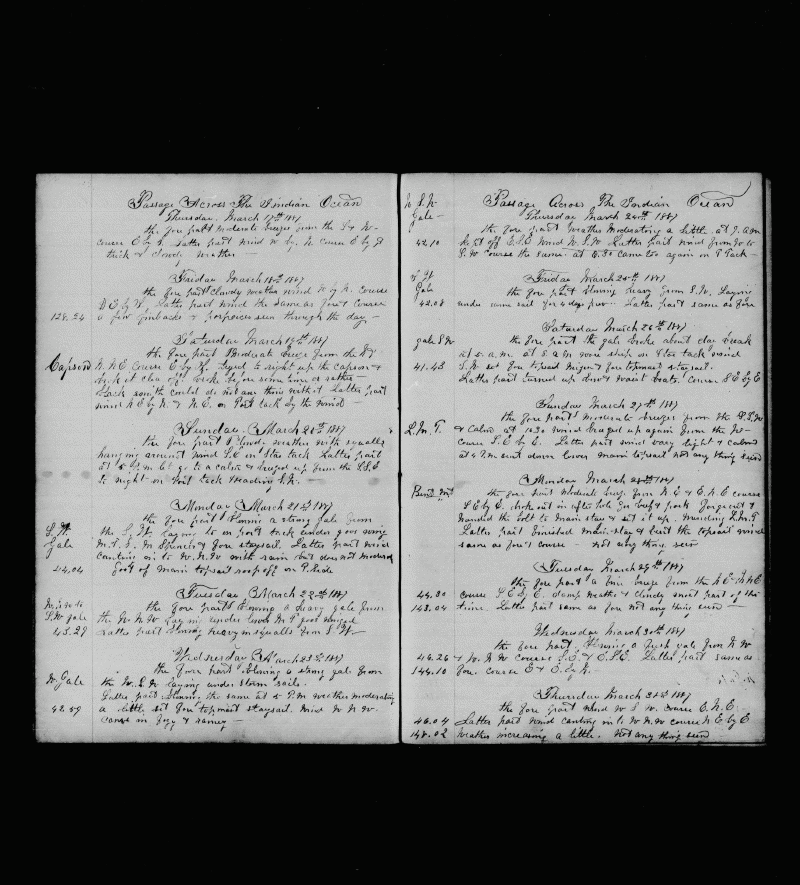 Passage Across The Indian Ocean
Thursday. March 17th 1887
the fore part moderate breeze from the S & W
course E by S. Latter part wind W by N. Course E by S
thick & cloudy weather
Friday March 18th 1887
the fore part cloudy weather wind W by N. Course
E by S. Latter part wind the same as fore & course
128.24 a few finbacks & porpoices seen through the day
Saturday March 19th 1887
the fore part Moderate breeze from the N
Capson N.N.E. Course E by S. tryed to right up the capson &
deck it
Jack smith could do not any thing with it Latter part
wind N E by N. & N.E. on Port tack by the wind
Sunday. March 20th 1887
the fore part Cloudy weather with squalls
hanging around wind S.E. on Star tack Latter part
at P.M. to a calm & breezed up from the S.S.E
to night on Port tack Heading S.W.
Monday March 21st 1887
the fore part blowing a strong gale from
S.W. the S.W. laying to on port tack under goos wing
Gale M.T.S. M Spencer & fore staysail. Latter part wind
canting in to W.N.W with rain but does not moderate
44.04 foot of main topsail
Tuesday March 22nd 1887
the fore part blowing a heavy gale from
S.W. gale the W.N.W laying under lower M.T. goos winged
43.29 Latter part blowing heavy in squalls from S.W.
Wednesday March 23rd 1887
the fore part blowing a strong gale from
W. Gale the W.S.W laying under storm sails.
Latter part blowing the same at 5 P.M. weather moderating
42.59 a little set fore topmast staysail. wind W N W.
came in foggy & rainey
W S.W Passage Across The Indian Ocean
Gale Thursday March 24th 1887
the fore part weather Moderating a little. at 7. A M
42.10 kept off E.S.E wind W.S.W Latter part wind from W to
S.W course the same. at 6.30 came too again on P Tack
Friday March 25th 1887
Gale the fore part blowing heavy from S.W. Laying
42.08 under same sail for 4 days prev. Latter part same as fore
Saturday March 26th 1887
gale S W the fore part the gale broke about day break
at 5. a.m. at 8 a m wore ship on Star tack wind
41.43 S.W. set fore topsail & fore topmast staysail.
Latter part turned up down & waist boats. Course S E by E
Sunday March 27th 1887
the fore part moderate breeze from the S.S.W
L.M.T. & Calm at 10.30 wind breezed up again from the W
course S.E by E. Latter part wind vary light & calm
at 4 P.m. sent down lower main topsail not any thing seen
Monday March 28th 1887
the fore part Moderate breeze from N.E & E.N.E course
S E by E. broke out in after hole for beef & pork
mended the bolt to Main stay & set it up. Mending L.M.T
Latter part finished main-stay & bent the topsail wind
same as fore & course - not any thing seen
Tuesday March 29th 1887
the fore part a fine breeze from the N E - N.N.E
course S E by E. damp weather & cloudy most part of the
143.04 time. Latter part same as fore not any thing seen
Wednesday March 30th 1887
the fore part blowing a fresh gale from N W
40.26 & W. N W course S.E. & E.S.E. Latter part same as
144.10 fore. course E & E by N.
Thursday March 31st 1887
the fore part wind W S W. Course E.N.E.
40.04 Latter part wind canting in to W N W course N E by E
148.02 weather increasing a little. Not any thing seen